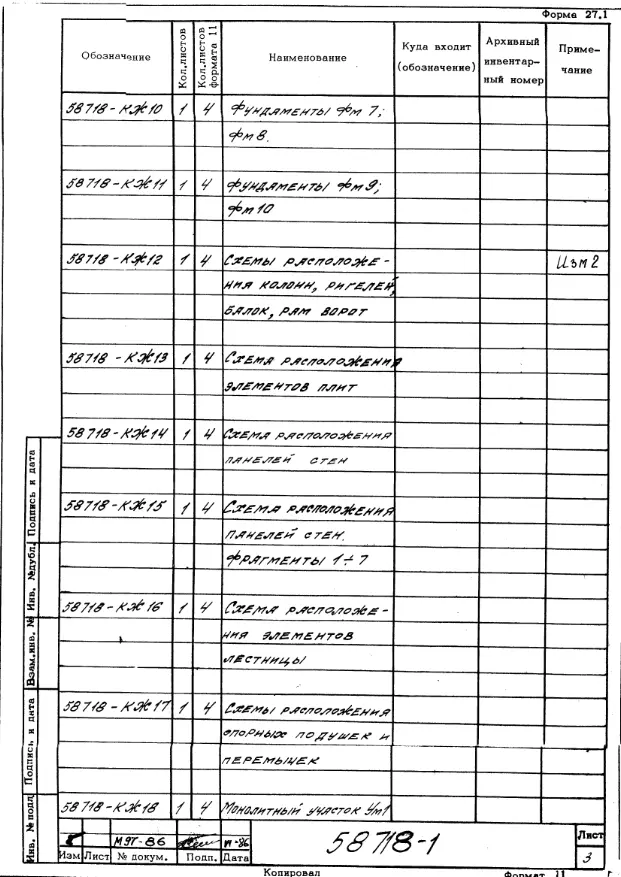 Форма 27.1
Обозначение
Кол.листов
Кол.листов формата 11
Наименование
Куда входит (обозначение)
Архивный инвентарный номер
Примечание
58718-КЖ10 1 4 Фундаменты Фм 7;
Фм 8.
58718-КЖ11 1 4 Фундаменты Фм 9;
Фм 10
58718-КЖ12 1 4 Схемы расположе- Изм 2
ния колонн, ригелей,
балок, рам ворот
58718-КЖ13 1 4 Схема расположения
элементов плит
58718-КЖ14 1 4 Схема расположения
панелей стен
58718-КЖ15 1 4 Схема расположения
панелей стен.
Фрагменты 1÷7
58718-КЖ16 1 4 Схема расположе-
ния элементов
лестницы
58718-КЖ17 1 4 Схемы расположения
опорных подушек и
перемычек
58718-КЖ18 1 4 Монолитный участок Ум1
Инв. № подл
Подпись и дата
Взам.инв. №
Инв. №дубл.
Подпись и дата
МЭТ-86
Изм Лист № докум. Подп. Дата
58718-1
Лист
3
Копировал
Формат 11